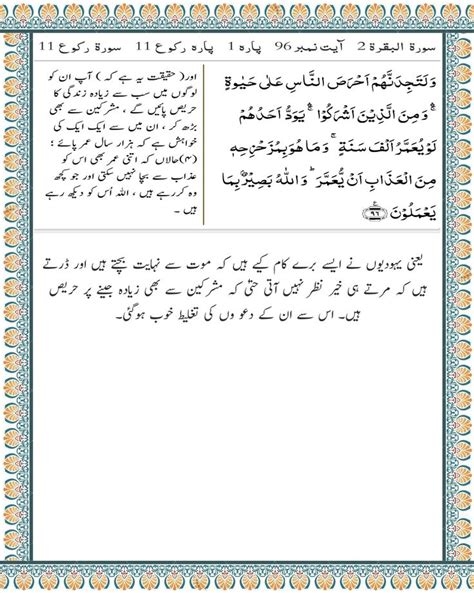 سورۃ البقرۃ 2   آیت نمبر 96   پارہ 1   پارہ رکوع 11   سورۃ رکوع 11
وَلَتَجِدَنَّهُمْ اَحْرَصَ النَّاسِ عَلٰى حَيٰوةٍ
ۛۚ وَمِنَ الَّذِيْنَ اَشْرَكُوْا ۛۚ يَوَدُّ اَحَدُهُمْ
لَوْ يُعَمَّرُ اَلْفَ سَنَةٍ ۚ وَمَا هُوَ بِمُزَحْزِحِهٖ
مِنَ الْعَذَابِ اَنْ يُّعَمَّرَ ؕ وَاللّٰهُ بَصِيْرٌۢ بِمَا
يَعْمَلُوْنَ ۟﴿۹۶﴾
اور( حقیقت یہ ہے کہ ) آپ ان کو
لوگوں میں سب سے زیادہ زندگی کا
حریص پائیں گے ، مشرکین سے بھی
بڑھ کر ، ان میں سے ایک ایک کی
خواہش ہے کہ ہزار سال عمر پائے ؛
(۴)حالاں کہ اتنی عمر بھی اس کو
عذاب سے بچا نہیں سکتی اور جو کچھ
وہ کررہے ہیں ، اللہ اُس کو دیکھ رہے
ہیں ۔
یعنی یہودیوں نے ایسے برے کام کیے ہیں کہ موت سے نہایت بچتے ہیں اور ڈرتے
ہیں کہ مرتے ہی خیر نظر نہیں آتی حتیٰ کہ مشرکین سے بھی زیادہ جینے پر حریص
ہیں۔ اس سے ان کے دعو وں کی تغلیط خوب ہوگئی۔